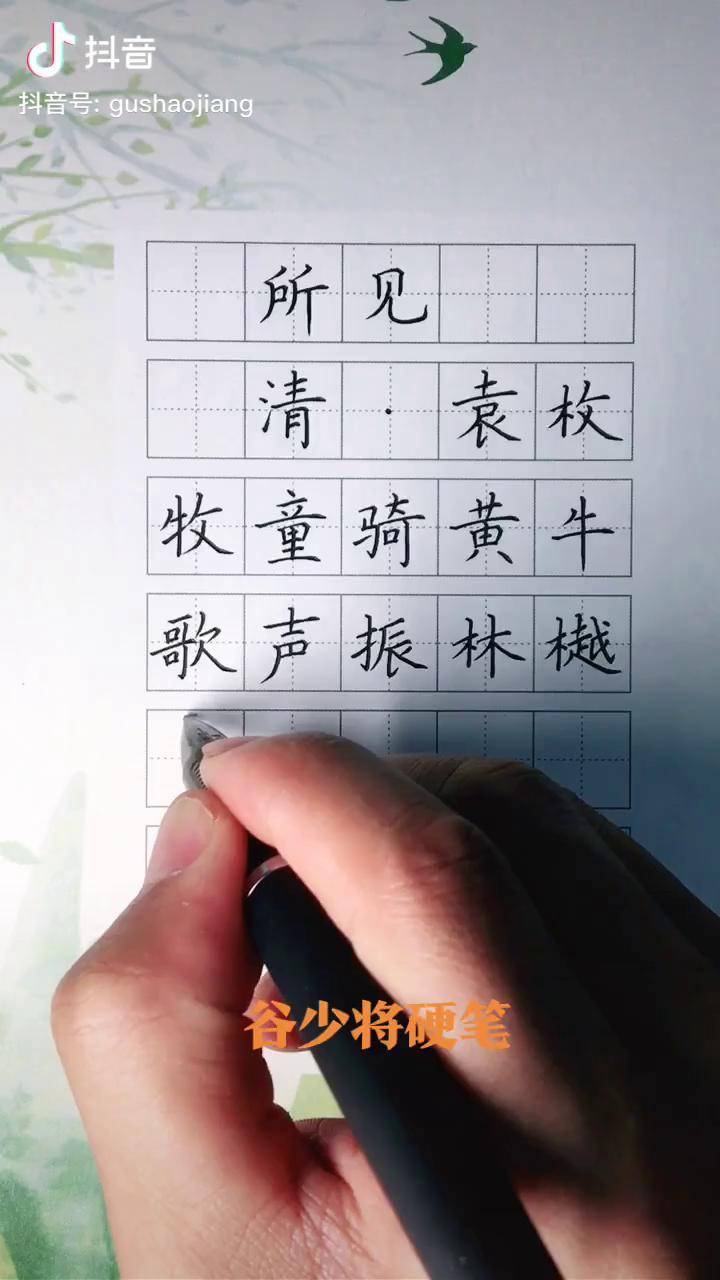 抖音
抖音号: gushaojiang
所见
清·袁枚
牧童骑黄牛
歌声振林樾
谷少将硬笔